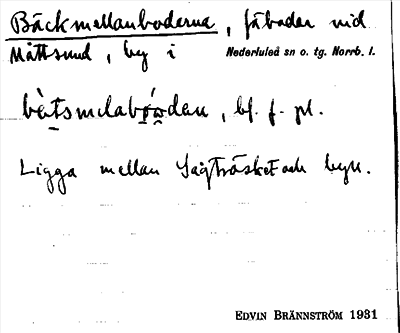 Bäckmellanboderna, fäbodar vid
Måttsund, by i Nederluleå sn o. tg. Norrb. l.
bf. f. pl.
Ligga mellan Sågträsket och byn.
EDVIN BRÄNNSTRÖM 1931